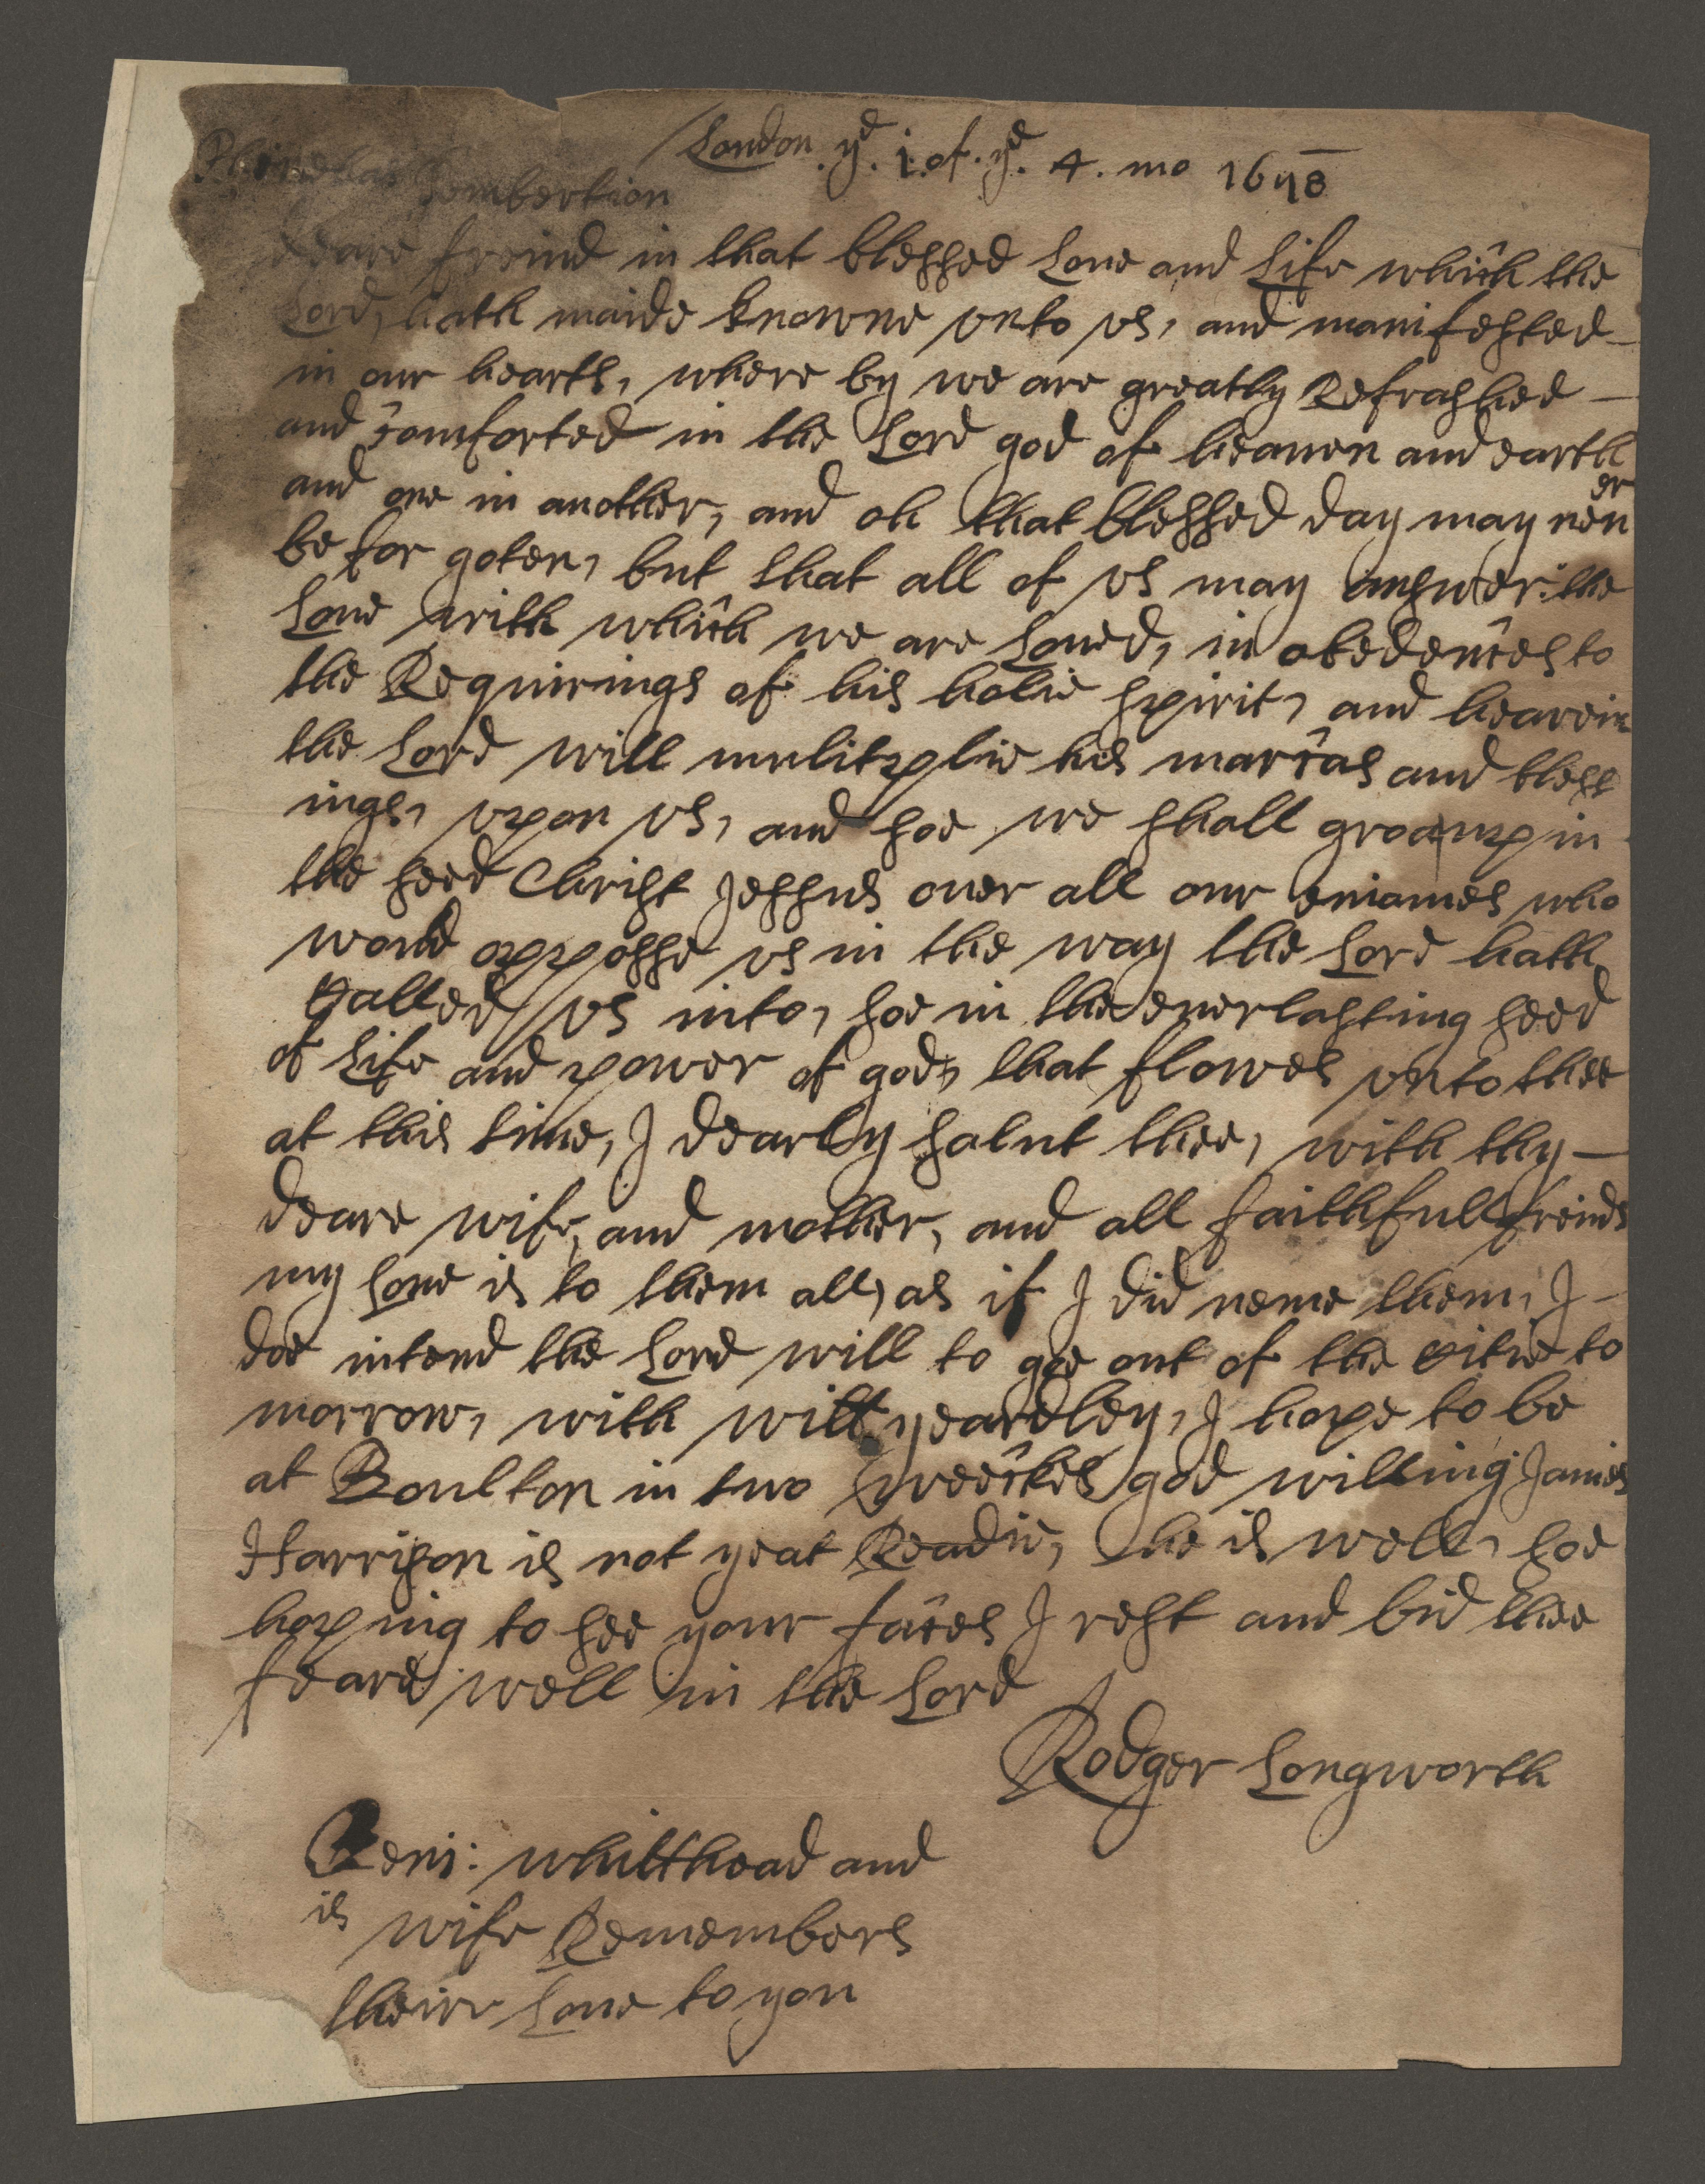 London . yd . i. of . yd . 4 . mo 1678
Phinehas Pembertion
deare freind in that blessed Love and Life which the
Lord, hath maide knowne vnto vs, and manifested
in our hearts, where by we are greatly Refrashed
and comforted in the Lord god of heauen and earth
and one in another, and oh that blessed day may neu
er
be for goten, but that all of vs may answer: the
Loue with which we are Loued, in obedences to
the Requirings of his holie spirit, and hearein
the Lord will mulitplie his marcas and bless
ings, vpon vs, and soe we shall groaup in
the seed Christ Jessus ouer all our eniames who
would apposse vs in the way the Lord hath
Called vs into, soe in the euerlasting seed
of Life and power of god, that flowes vnto thee
at this time, I dearly salut thee, with thy
deare wife, and mother, and all faithfull freinds
my Loue is to them all, as if I did neme them, I
doe intend the Lord will to goe out of the Citie to
morrow, with will yeardley, I hope to be
at Boulton in two weeckes god willing James
Harrison is not yeat Readie, he is well, soe
hoping to see your faces I rest and bid thee
feare well in the Lord
Rodger Longworth
Beni: whitthead and
is wife Remembers
theire Loue to you